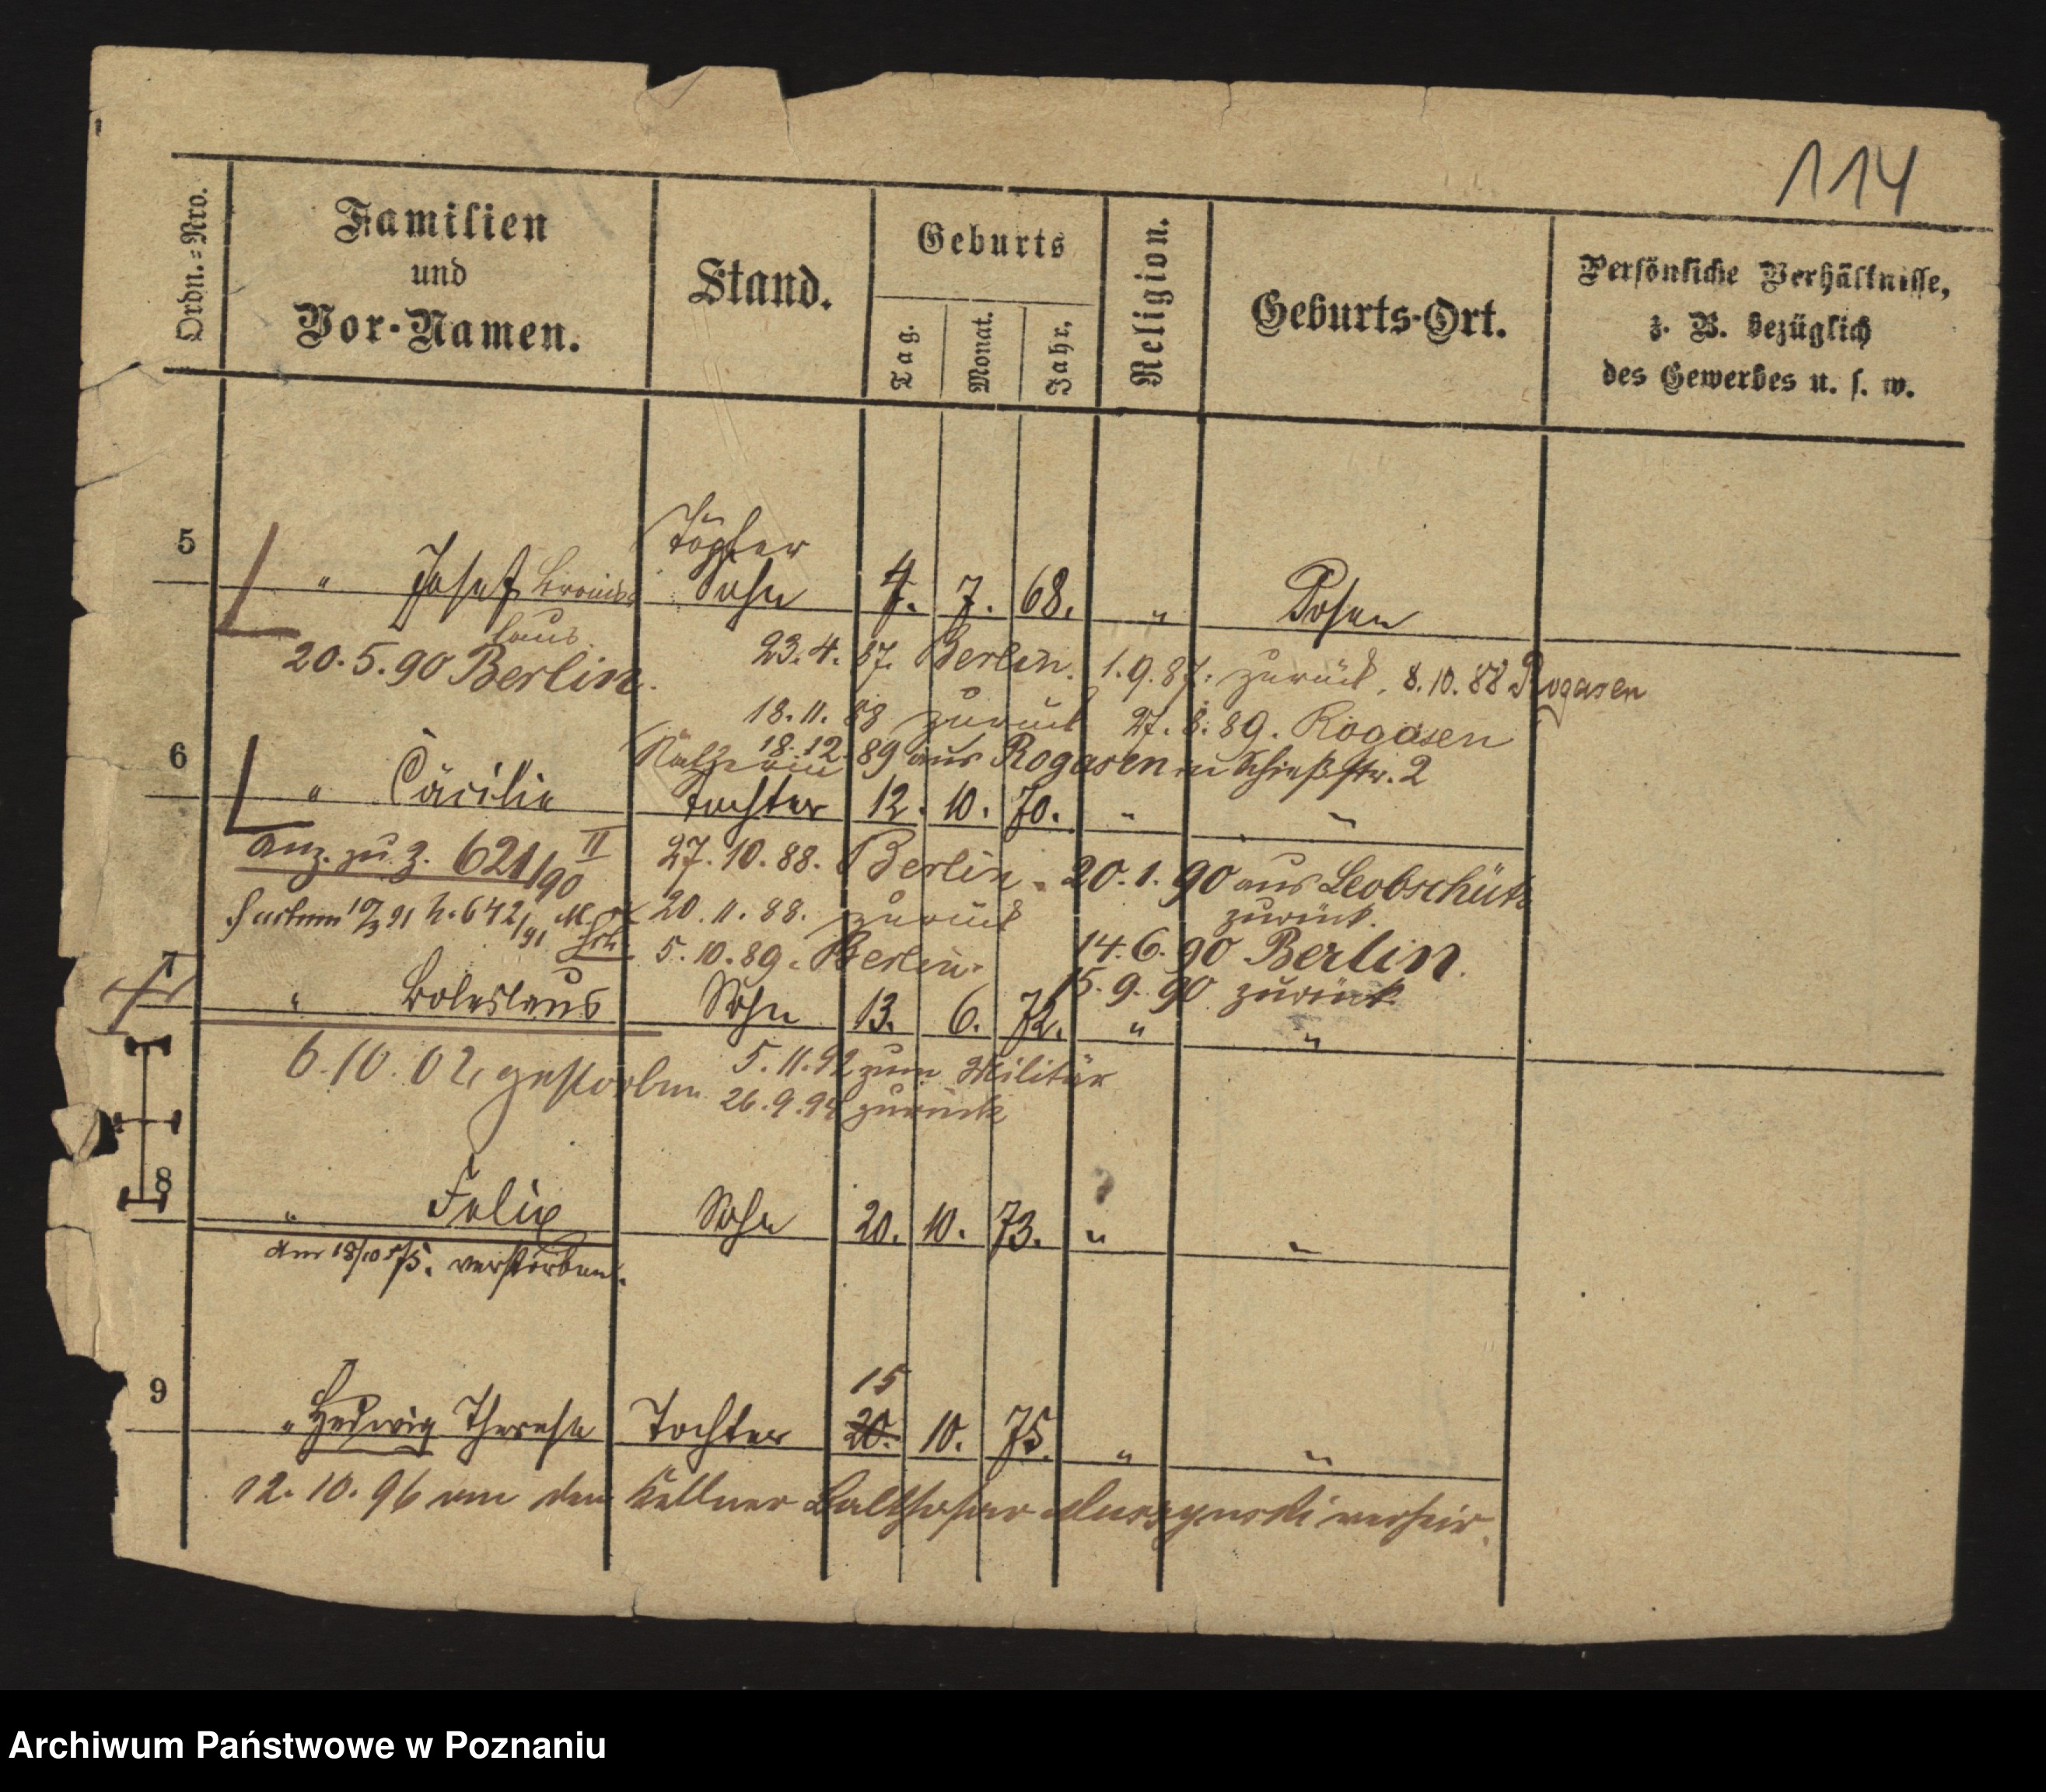 114
Ordn.-Nro.
Familien
und
Vor-Namen.
Stand.
Geburts
Tag.
Monat.
Jahr.
Religion.
Geburts-Ort.
Persönliche Verhältnisse,
z. B. bezüglich
des Gewerbes u. s. w.
Töpfer
5 " Josef Bronis Sohn 4. 7. 68. " Posen
laus.
20.5.90 Berlin. 23.4.87. Berlin. 1.9.87. zurück. 8.10.88 Rogasen
18.11.88 zurück 27.8.89. Rogasen
18.12.89 aus Rogasen n Schießstr. 2
Nätherin
6 " Cäcilie Tochter 12. 10. 70. " "
Anz. zu Z. 621/90 II 27.10.88. Berlin. 20.1.90 aus Leobschütz
zurück.
91 h. 642/91 20.11.88. zurück
5.10.89. Berlin. 14.6.90 Berlin.
15.9.90 zurück
7 " Boleslaus Sohn 13. 6. 72. " "
6.10.02, gestorben 5.11.92 zum Militär
26.9.94 zurück
8 " Felix Sohn 20. 10. 73. " "
am 18/10 75. verstorben.
15
9 " Hedwig Therese Tochter 20. 10. 75. " "
12.10.96 an den Kellner Balthasar Muszynski verheir.
Archiwum Państwowe w Poznaniu